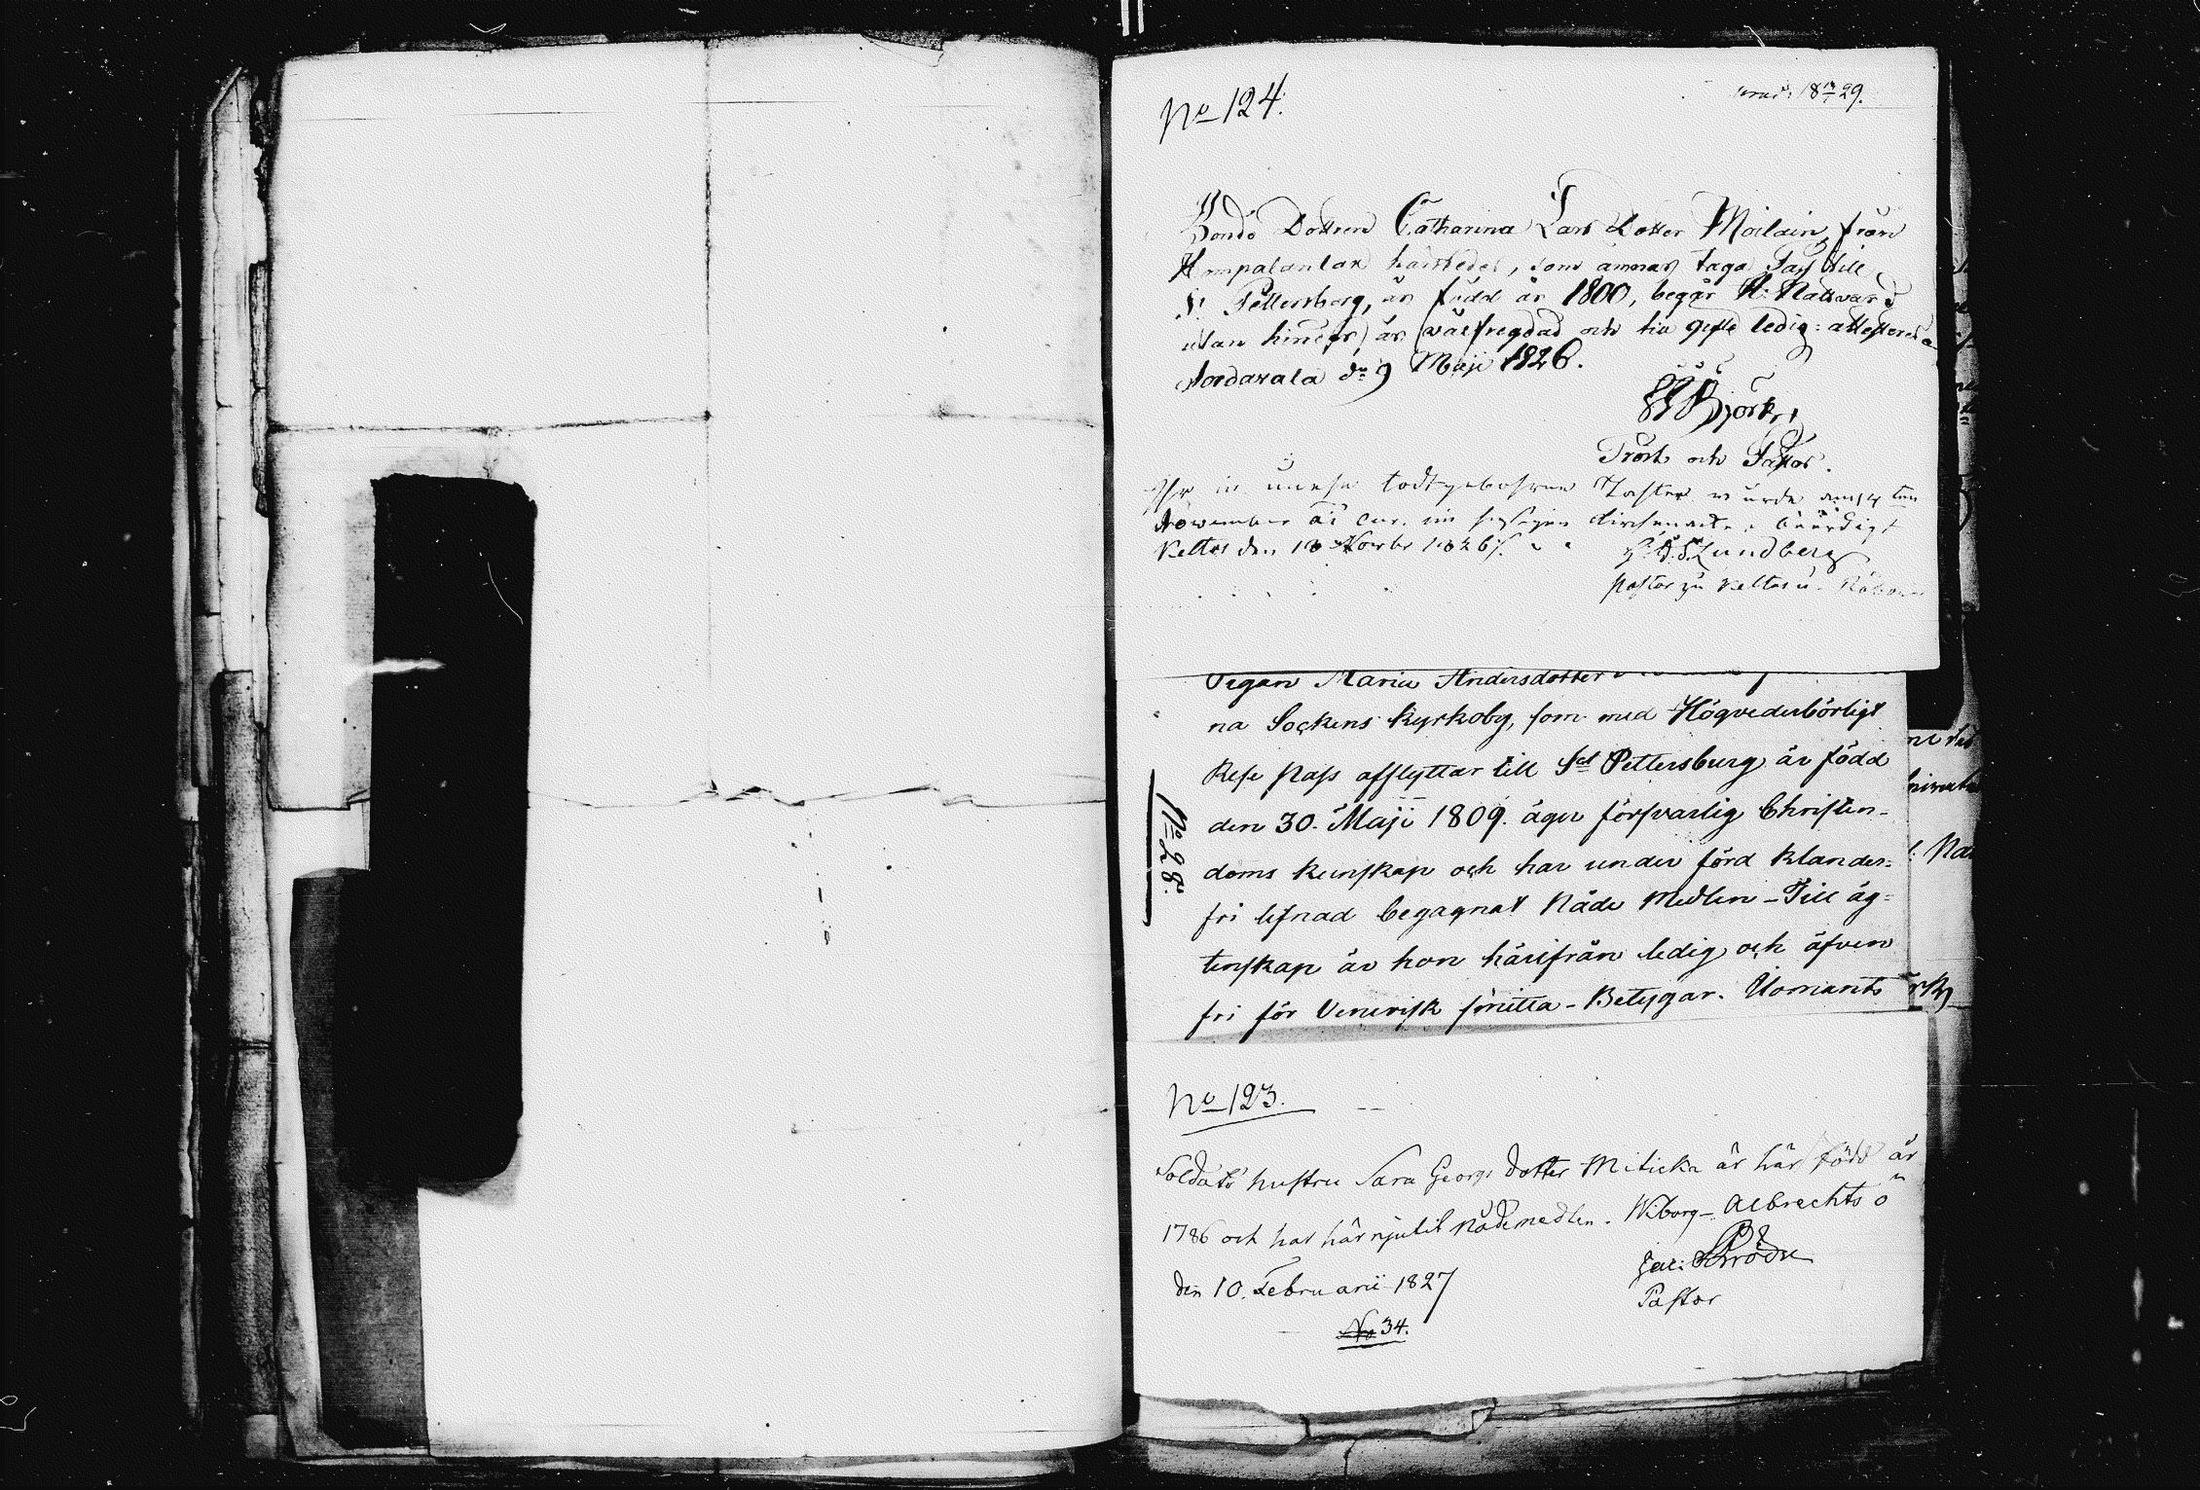 No 124.
18 29.
Bonde Dottren Catharina Lars Dotter Moilain, från
Kimpalanlax härstedes, som ämnar taga Pass till
St Pettersburg, är född år 1800, begår H: Nattvard
utan hinder, är välfregdad och till gifte ledig: attesterar
Sordavala dn 9 Maji 1826.
Björk,
Prost och Pastor.
Ihr in unehe todtgebohrne Tochter wurde am 14 ten
November ai cur. im hiesigen Kirchen beerdigt
Keltos den 18 Novbr 1826.
Lundberg
Pastor zu Keltos u.
Pigan Maria Andersdotter
na Sockens Kyrkoby, som med Högvederbörligt
Rese Pass afflyttar till Sct Pettersburg är född
den 30. Maji 1809. äger försvarlig Christen-
doms kunskap och har under förd klander=
fri lefnad begagnat Nåde Medlen - Till äg=
tenskap är hon härifrån ledig och äfven
fri för Venerisk smitta - Betygar.
No 28.
No 123.
Soldats hustru Sara Georgs dotter Miticka är här född år
1786 och har här njutit Nådemedlen. Wiborg - Albrechts ö
den 10. Februarii 1827
Pastor
No 34.